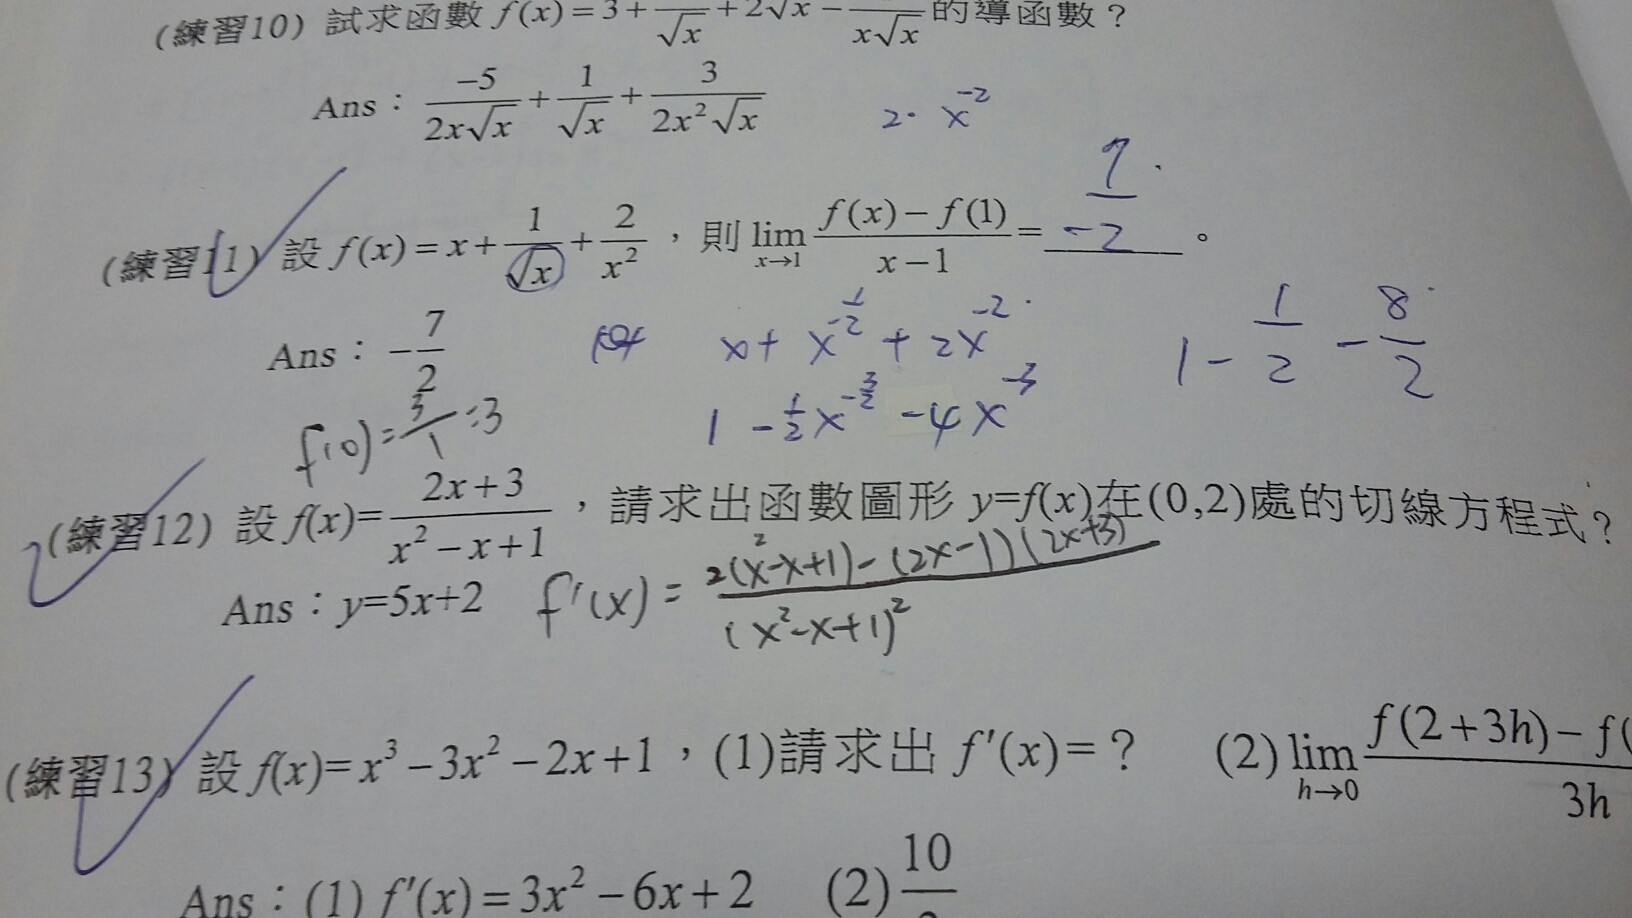 (練習10) 試求函數 f(x)=3+ /√x +2√x− /x√x 的導函數？
Ans：−5/2x√x + 1/√x + 3/2x²√x
2· x⁻²
(練習11) 設 f(x)=x+1/√x+2/x²，則 lim x→1 f(x)−f(1)/x−1 = 7/−2 。
Ans：−7/2
x+ x^−1/2 + 2x⁻²
1 − 1/2 − 8/2
1 −1/2x^−3/2 −4x⁻³
f(0)=3/1=3
(練習12) 設 f(x)=2x+3/x²−x+1，請求出函數圖形 y=f(x)在(0,2)處的切線方程式？
Ans：y=5x+2
f'(x) = 2(x²-x+1)-(2x-1)(2x+3)/(x²-x+1)²
(練習13) 設 f(x)=x³−3x²−2x+1，(1)請求出 f'(x)=？ (2) lim h→0 f(2+3h)−f(/3h
Ans：(1) f'(x)=3x²−6x+2 (2) 10/